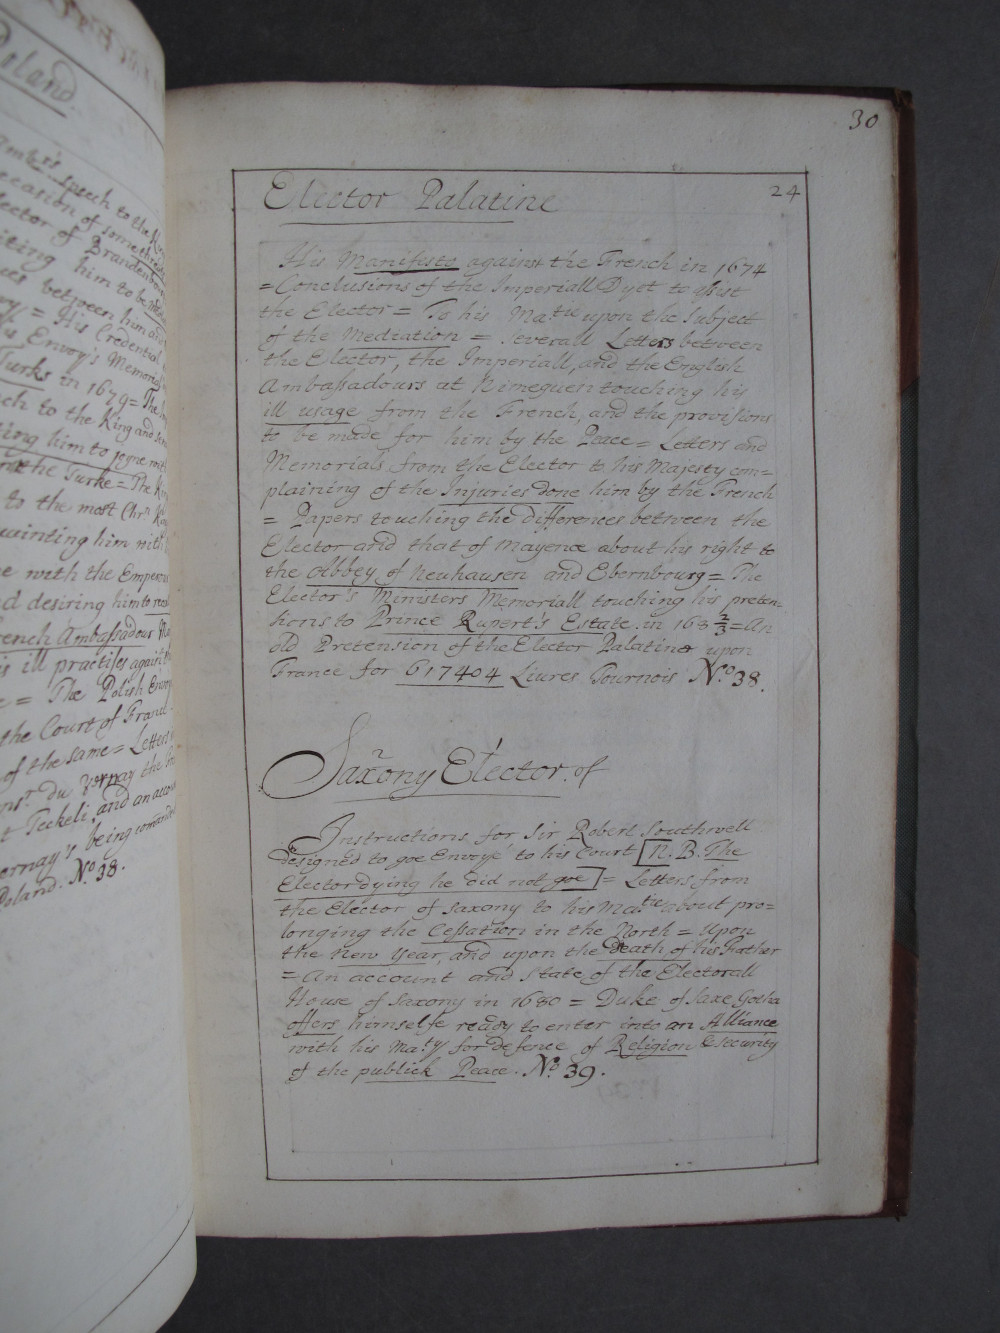 Poland.
Amb.rs speech to the King
occasion of some
Elector of Brandenb
him to be
between him and
His Credential
Envoy's Memorial
Turks in 1679 = The
to the King and
him to joyne with
the Turke = The King
to the most Chr.n King
him with
with the Emperour
and desiring him to
French Ambassadour
his ill practises against
= The Polish Envoy
the Court of France
of the same = Letters
du Vernay the
Teckeli, and an account
being
Poland. No. 38.
30
24
Elector Palatine
His Manifesto against the French in 1674
= Conclusions of the Imperiall Dyet to assist
the Elector = To his Ma.tie upon the Subject
of the Mediation = Severall Letters between
the Elector, the Imperiall, and the English
Ambassadours at Nimeguen touching his
ill usage from the French, and the provisions
to be made for him by the Peace = Letters and
Memorials from the Elector to his Majesty com=
plaining of the Injuries done him by the French
= Papers touching the differences between the
Elector and that of Mayence about his right to
the Abbey of Neuhausen and Ebernbourg = The
Elector's Ministers Memoriall touching his preten=
tions to Prince Rupert's Estate in 168 2/3 = An
old Pretension of the Elector Palatine upon
France for 617404 Livres Tournois No. 38.
Saxony Elector of
Instructions for Sir Robert Southwell
designed to goe Envoyé to his Court [N.B. The
Elector dying he did not goe] = Letters from
the Elector of Saxony to his Ma.tie about pro=
longing the Cessation in the North = Upon
the New Year, and upon the Death of his Father
= An account and state of the Electorall
House of Saxony in 1680 = Duke of Saxe Gotha
offers himselfe ready to enter into an Alliance
with his Ma.ty for defence of Religion & security
of the publick Peace. No. 39.